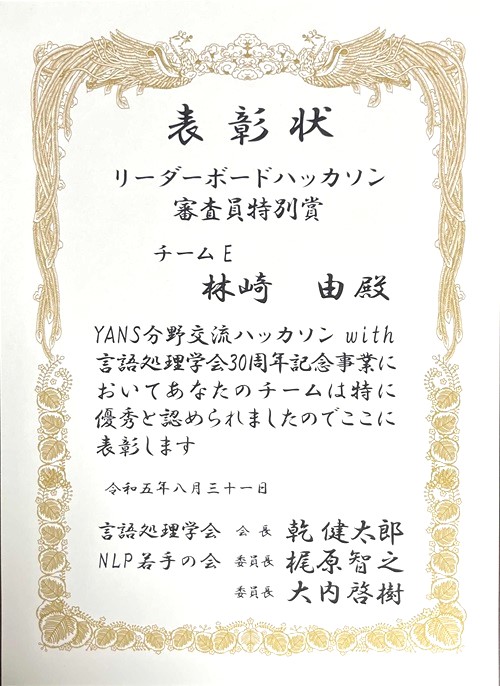 表彰状
リーダーボードハッカソン
審査員特別賞
チームE
林崎 由殿
YANS分野交流ハッカソン with
言語処理学会30周年記念事業に
おいてあなたのチームは特に
優秀と認められましたのでここに
表彰します
令和五年八月三十一日
言語処理学会 会長 乾健太郎
NLP若手の会 委員長 梶原智之
委員長 大内啓樹